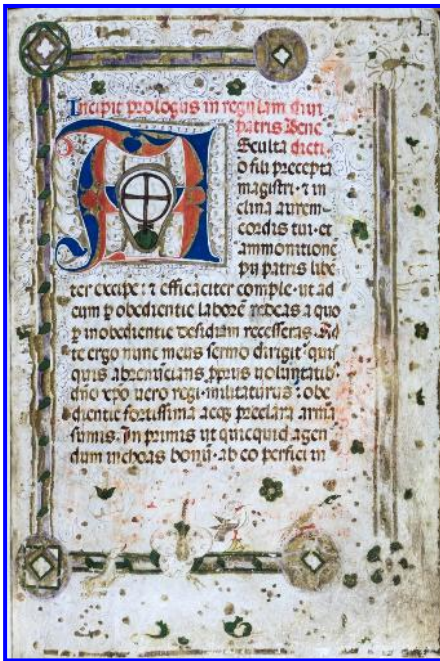 Incipit prologus in regulam diui
patris Bene
Ausculta dicti.
o fili precepta
magistri · ⁊ in
clina aurem
cordis tui · et
ammonitionē
pii patris libē
ter excipe : ⁊ efficaciter comple · ut ad
eum ꝑ obedientie laborē redeas a quo
ꝑ inobedientie desidiam recesseras. Ad
te ergo nunc meus sermo dirigit qui
quis abrenūcians ꝓprijs uoluntatibꝰ
dn̄o xp̄o uero regi · militaturus : obe
dientie fortissima atqꝫ preclara arma
sumis. In primis ut quicquid agen
dum inchoas bonū · ab eo perfici in